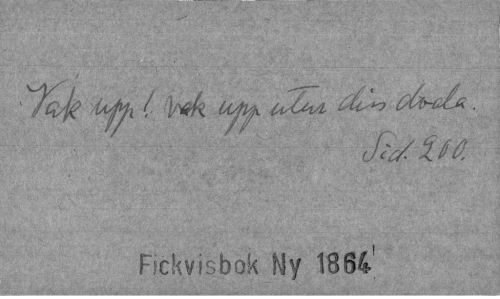 Vak upp! vak upp utur din dvala.
Sid. 200.
Fickvisbok Ny 1864